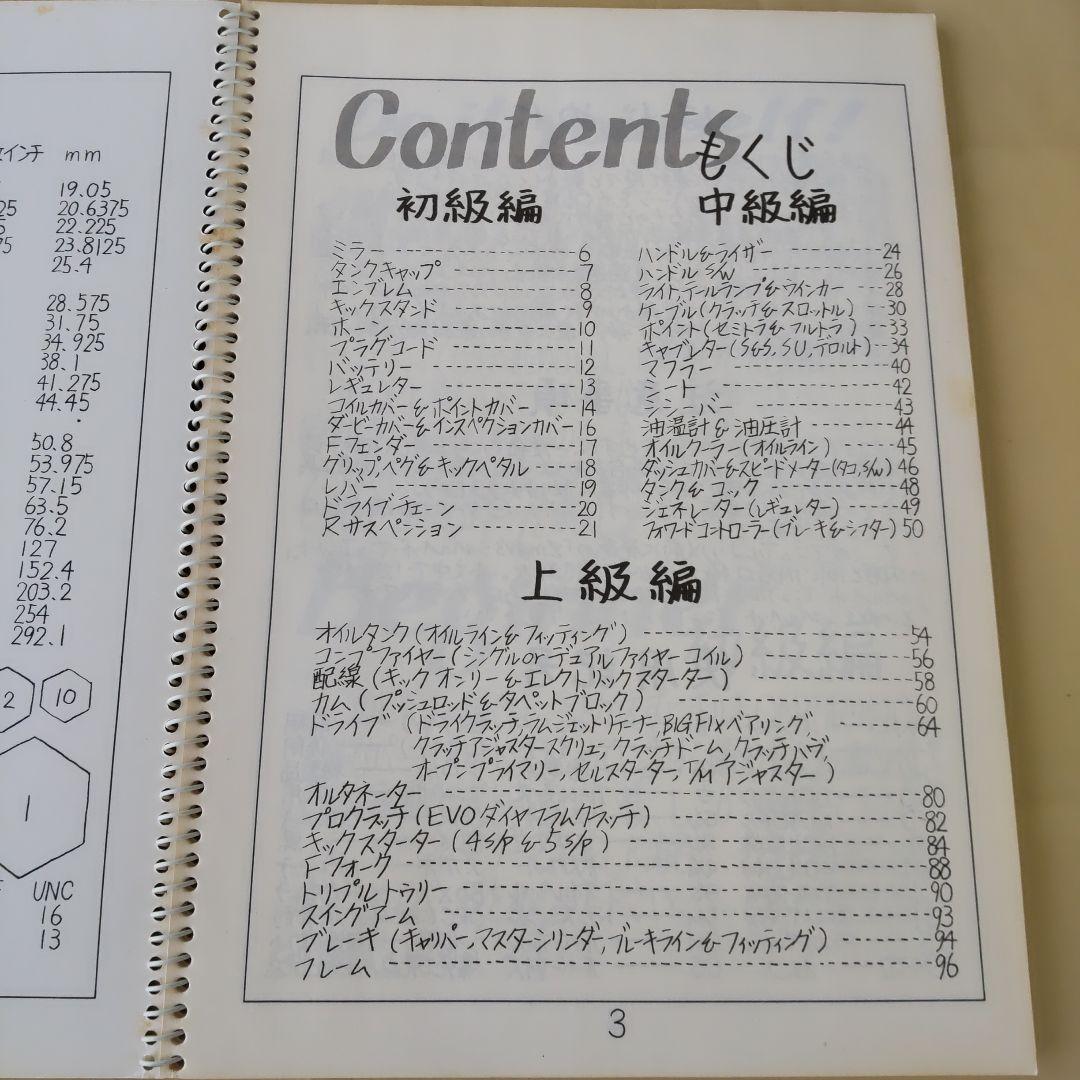 インチ mm
19.05
20.6375
22.225
23.8125
25.4
28.575
31.75
34.925
38.1
41.275
44.45
50.8
53.975
57.15
63.5
76.2
127
152.4
203.2
254
292.1
2 10
1
UNC
16
13
Contents
もくじ
初級編
ミラー 6
タンクキャップ 7
エンブレム 8
キックスタンド 9
ホーン 10
プラグコード 11
バッテリー 12
レギュレター 13
コイルカバー&ポイントカバー 14
ダービーカバー&インスペクションカバー 16
Fフェンダー 17
グリップペグ&キックペタル 18
レバー 19
ドライブチェーン 20
Rサスペンション 21
中級編
ハンドル&ライザー 24
ハンドルS/W 26
ライトテールランプ&ウインカー 28
ケーブル(クラッチ&スロットル) 30
ポイント(セミトラ&フルトラ) 33
キャブレター(S&S,SU,デロルト) 34
マフラー 40
シート 42
シシーバー 43
油温計&油圧計 44
オイルクーラー(オイルライン) 45
ダッシュカバー&スピードメーター(タコ,S/W) 46
タンク&コック 48
ジェネレーター(レギュレター) 49
フォワードコントローラー(ブレーキ&シフター) 50
上級編
オイルタンク(オイルライン&フィッティング) 54
コンプファイヤー(シングルorデュアルファイヤーコイル) 56
配線(キックオンリー&エレクトリックスターター) 58
カム(プッシュロッド&タペットブロック) 60
ドライブ(ドライクラッチ,ラムジェットリテーナー,BIG FIxベアリング, 64
クラッチアジャスタースクリュ,クラッチドーム,クラッチハブ,
オープンプライマリー,セルスターター,T/Mアジャスター)
オルタネーター 80
プロクラッチ(EVOダイヤフラムクラッチ) 82
キックスターター(4S/P&5S/P) 84
Fフォーク 88
トリプルトゥリー 90
スイングアーム 93
ブレーキ(キャリパー,マスターシリンダー,ブレーキライン&フィッティング) 94
フレーム 96
3